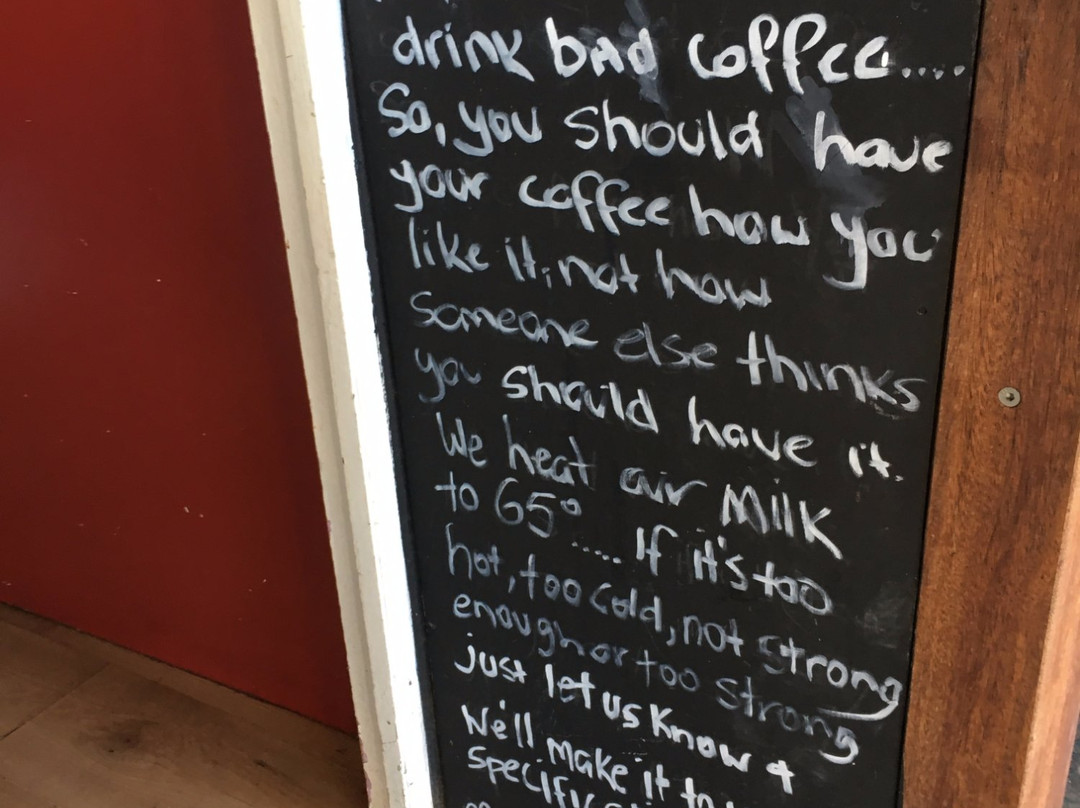 drink bad coffee....
So, you should have
your coffee how you
like it, not how
someone else thinks
you should have it.
We heat our Milk
to 65°..... If it's too
hot, too cold, not strong
enough or too strong
just let us know &
We'll make it to